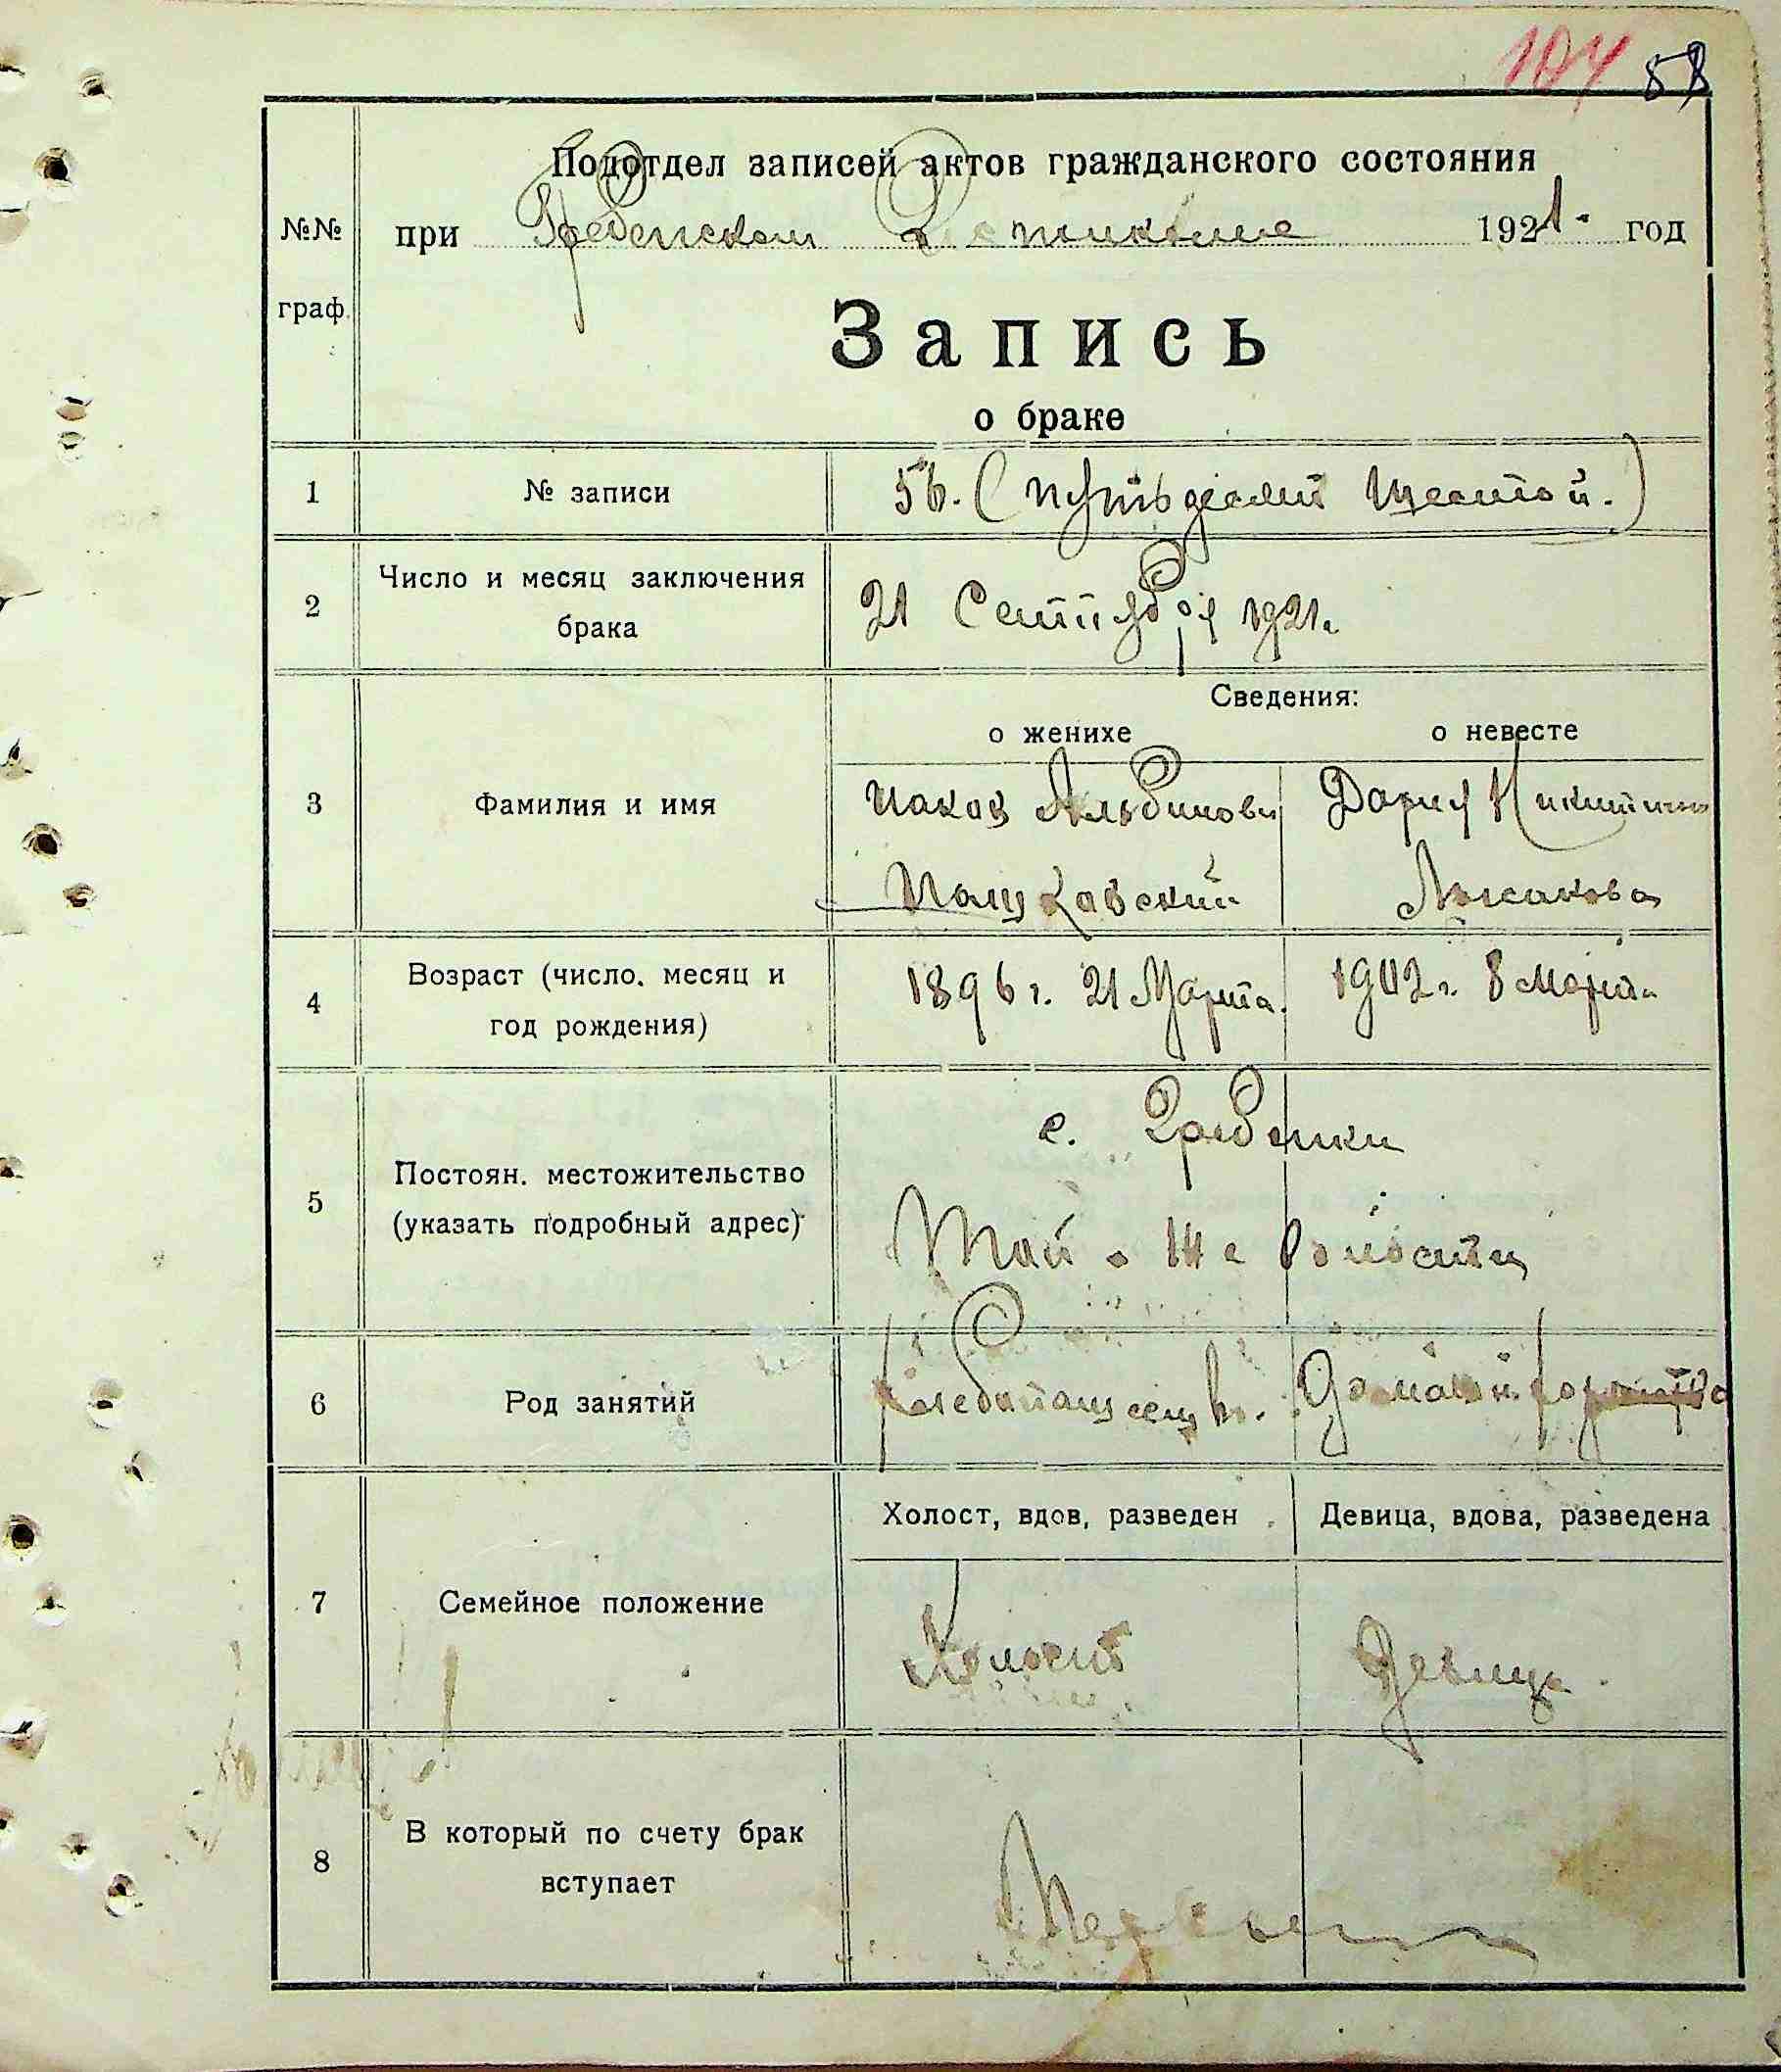 104 58
Подотдел записей актов гражданского состояния
№№ граф.
при Гребенском 1921. год
Запись
о браке
1 № записи 56. (пятьдесят шестой.)
2 Число и месяц заключения брака
21 Сентября 1921 г.
Сведения:
о женихе о невесте
3 Фамилия и имя
Иаков Альбинови Дария Никитична
4 Возраст (число, месяц и год рождения)
1896 г. 21 Марта. 1902 г. 8 Марта
с. Гребенки
5 Постоян. местожительство (указать подробный адрес)
той-же волости
6 Род занятий
Холост, вдов, разведен Девица, вдова, разведена
7 Семейное положение
Холост Девица.
8 В который по счету брак вступает